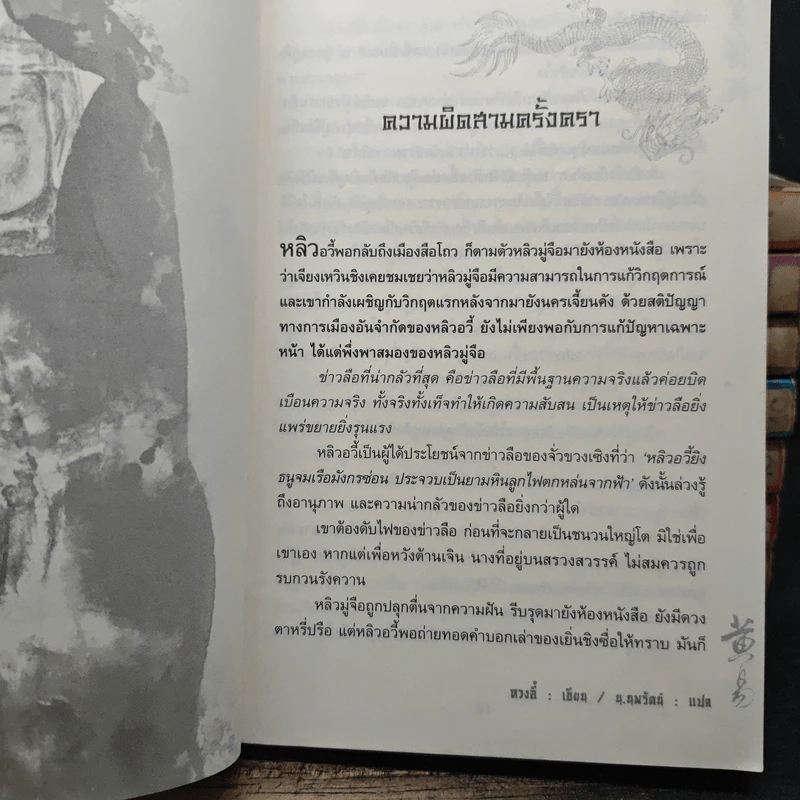 ความผิดสามครั้งครา
หลิวอวี้พอกลับถึงเมืองสือโถว ก็ตามตัวหลิวมู่จือมายังห้องหนังสือ เพราะ
ว่าเจียงเหวินชิงเคยชมเชยว่าหลิวมู่จือมีความสามารถในการแก้วิกฤตการณ์
และเขากำลังเผชิญกับวิกฤตแรกหลังจากมายังนครเจี้ยนคัง ด้วยสติปัญญา
ทางการเมืองอันจำกัดของหลิวอวี้ ยังไม่เพียงพอกับการแก้ปัญหาเฉพาะ
หน้า ได้แต่พึ่งพาสมองของหลิวมู่จือ
ข่าวลือที่น่ากลัวที่สุด คือข่าวลือที่มีพื้นฐานความจริงแล้วค่อยบิด
เบือนความจริง ทั้งจริงทั้งเท็จทำให้เกิดความสับสน เป็นเหตุให้ข่าวลือยิ่ง
แพร่ขยายยิ่งรุนแรง
หลิวอวี้เป็นผู้ได้ประโยชน์จากข่าวลือของจั่วขวงเซิงที่ว่า 'หลิวอวี้ยิง
ธนูจมเรือมังกรซ่อน ประจวบเป็นยามหินลูกไฟตกหล่นจากฟ้า' ดังนั้นล่วงรู้
ถึงอานุภาพ และความน่ากลัวของข่าวลือยิ่งกว่าผู้ใด
เขาต้องดับไฟของข่าวลือ ก่อนที่จะกลายเป็นชนวนใหญ่โต มิใช่เพื่อ
เขาเอง หากแต่เพื่อหวังต้านเจิน นางที่อยู่บนสรวงสวรรค์ ไม่สมควรถูก
รบกวนรังควาน
หลิวมู่จือถูกปลุกตื่นจากความฝัน รีบรุดมายังห้องหนังสือ ยังมีดวง
ตาหรี่ปรือ แต่หลิวอวี้พอถ่ายทอดคำบอกเล่าของเยิ่นชิงซื่อให้ทราบ มันก็
黄易
หวงอี้ : เขียน / น.นพรัตน์ : แปล